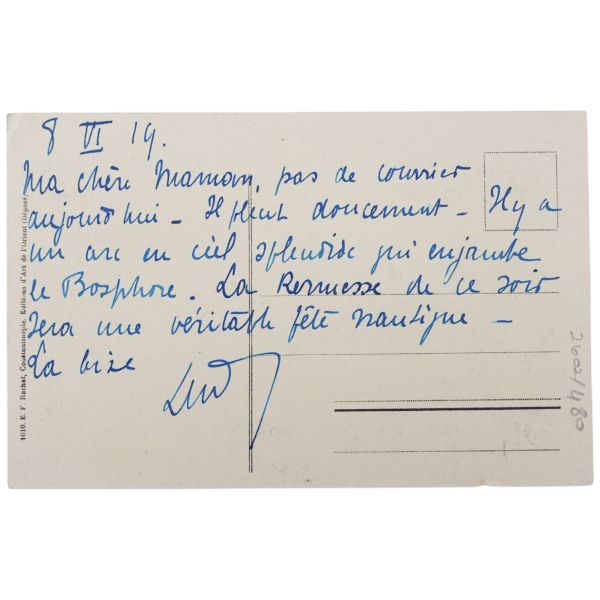 8 VI 19.
Ma chère Maman, pas de courrier
aujourd'hui - Il pleut doucement - Il y a
un arc en ciel splendide qui enjambe
le Bosphore. La Kermesse de ce soir
sera une véritable fête nautique -
La bise
4010. E. F. Rochat, Constantinople. Editions d'Art de l'Orient (Déposé)
2602/480